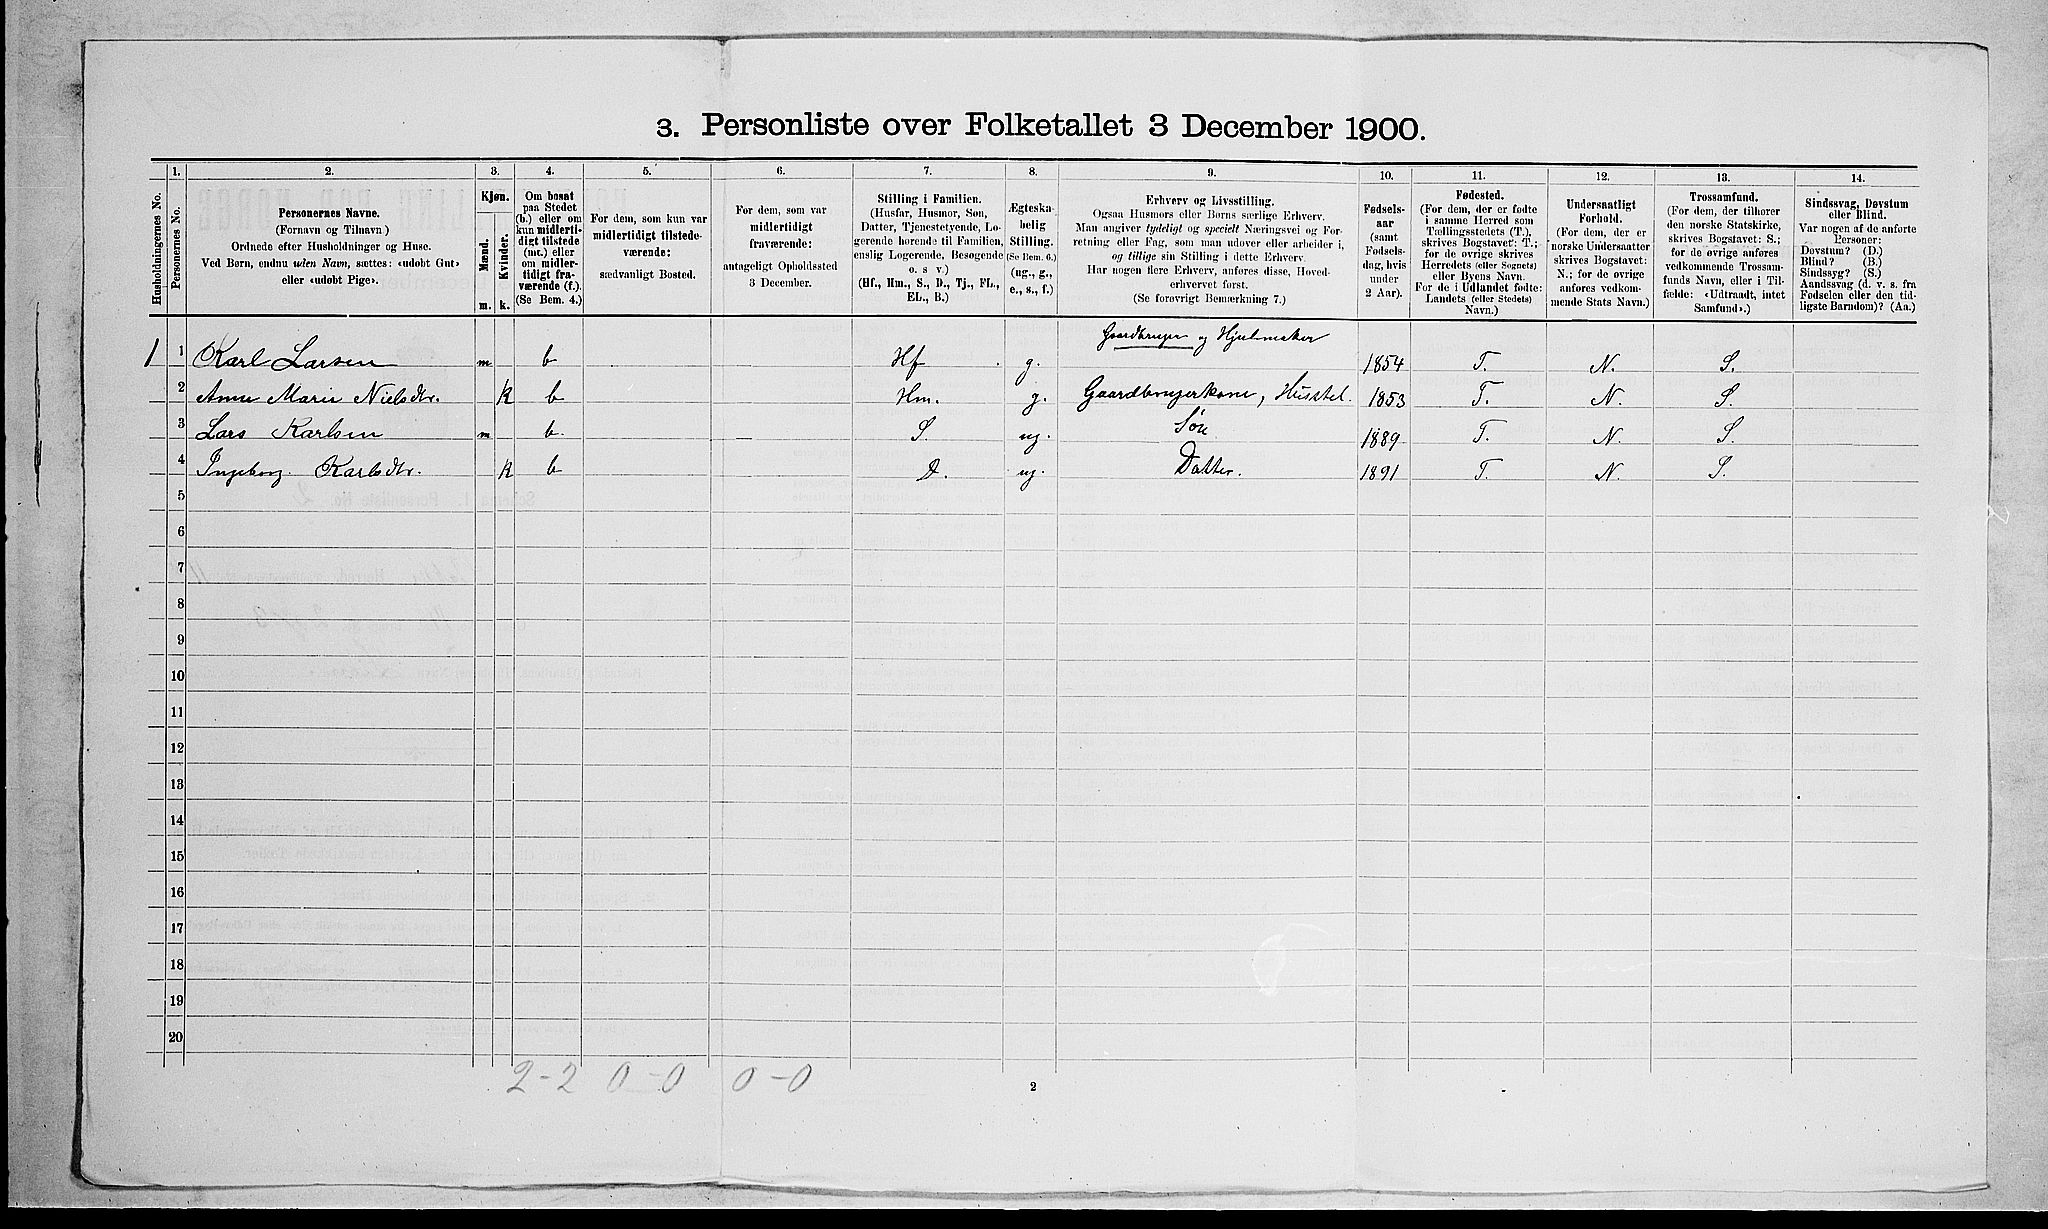 3. Personliste over Folketallet 3 December 1900.
1. 2. 3. 4. 5. 6. 7. 8. 9. 10. 11. 12. 13. 14.
Husholdningernes No.
Personernes No.
Personernes Navne.
(Fornavn og Tilnavn)
Ordnede efter Husholdninger og Huse.
Ved Børn, endnu uden Navn, sættes: «udøbt Gut»
eller «udøbt Pige».
Kjøn.
Mænd.
Kvinder.
m. k.
Om bosat
paa Stedet
(b.) eller om
kun midlerti-
digt tilstede
(mt.) eller
om midler-
tidigt fra-
værende (f.).
(Se Bem. 4.)
For dem, som kun var
midlertidigt tilstede-
værende:
sædvanligt Bosted.
For dem, som var
midlertidigt
fraværende:
antageligt Opholdssted
3 December.
Stilling i Familien.
(Husfar, Husmor, Søn,
Datter, Tjenestetyende, Lo-
gerende hørende til Familien,
enslig Logerende, Besøgende
o. s v.)
(Hf., Hm., S., D., Tj., FL.,
EL., B.)
Ægteska-
belig
Stilling.
(Se Bem. 6.)
(ug., g.,
e., s., f.)
Erhverv og Livsstilling.
Ogsaa Husmors eller Børns særlige Erhverv.
Man angiver tydeligt og specielt Næringsvei og For-
retning eller Fag, som man udøver eller arbeider i,
og tillige sin Stilling i dette Erhverv.
Har nogen flere Erhverv, anføres disse, Hoved-
erhvervet først.
(Se forøvrigt Bemerkning 7.)
Fødsels-
aar
(samt
Fødsels-
dag, hvis
under
2 Aar).
Fødested.
(For dem, der er fødte
i samme Herred som
Tællingsstedets (T.),
skrives Bogstavet: T.;
for de øvrige skrives
Herredets (eller Sognets)
eller Byens Navn.
For de i Udlandet fødte:
Landets (eller Stedets)
Navn.)
Undersaatligt
Forhold.
(For dem, der er
norske Undersaatter
skrives Bogstavet:
N.; for de øvrige
anføres vedkom-
mende Stats Navn.)
Trossamfund.
(For dem, der tilhører
den norske Statskirke,
skrives Bogstavet: S.;
for de øvrige anføres
vedkommende Trossam-
funds Navn, eller i Til-
fælde: «Udtraadt, intet
Samfund».)
Sindssvag, Døvstum
eller Blind.
Var nogen af de anførte
Personer:
Døvstum? (D.)
Blind? (B.)
Sindssyg? (S.)
Aandssvag (d. v. s. fra
Fødselen eller den tid-
ligste Barndom)? (Aa.)
1 1 Karl Larsen m b Hf g. Gaardbruger og Hjulmaker 1854 T. N. S.
2 Anne Marie Nielsdtr. k b Hm. g. Gaardbrugerkone, Husstel. 1853 T. N. S.
3 Lars Karlsen m b. S. ug. Søn 1889 T. N. S.
4 Ingeborg Karlsdtr. k b D. ug. Datter. 1891 T. N. S.
5
6
7
8
9
10
11
12
13
14
15
16
17
18
19
20
2-2 0-0 0-0
2